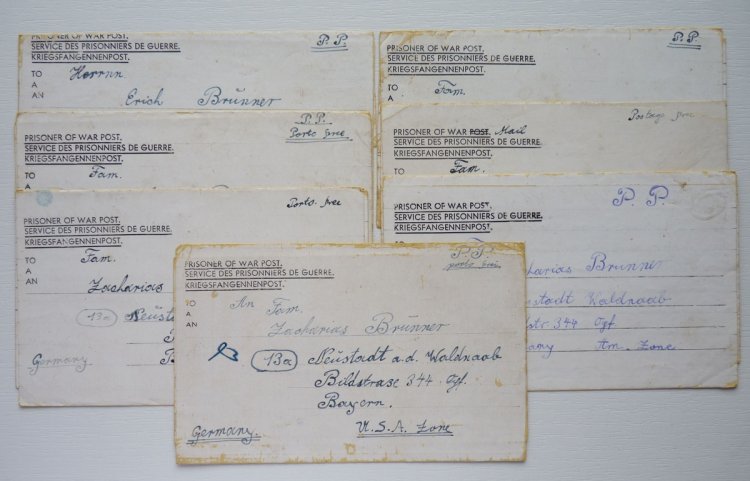 PRISONER OF WAR POST.
SERVICE DES PRISONNIERS DE GUERRE.
KRIEGSFANGENNENPOST.
P.P.
TO
A
AN
Herrnn
Erich Brünner
PRISONER OF WAR POST.
SERVICE DES PRISONNIERS DE GUERRE.
KRIEGSFANGENNENPOST.
P.P.
Porto free
TO
A
Fam.
PRISONER OF WAR POST.
SERVICE DES PRISONNIERS DE GUERRE.
KRIEGSFANGENNENPOST.
Porto free
TO
A
AN
Fam.
Zacharias
13a
Germany
PRISONER OF WAR POST.
SERVICE DES PRISONNIERS DE GUERRE.
KRIEGSFANGENNENPOST.
P.P.
TO
A
Fam.
PRISONER OF WAR POST. Mail
SERVICE DES PRISONNIERS DE GUERRE.
KRIEGSFANGENNENPOST.
Postage free
TO
Fam.
PRISONER OF WAR POST.
SERVICE DES PRISONNIERS DE GUERRE.
KRIEGSFANGENNENPOST.
P.P.
harias Brünner
ustadt Waldnaab
str 344 Opf.
any Am. Zone
PRISONER OF WAR POST.
SERVICE DES PRISONNIERS DE GUERRE.
KRIEGSFANGENNENPOST.
P.P.
porto free
TO
A
AN
An Fam.
Zacharias Brünner
13a Neüstadt a.d. Waldnaab
Bildstrase 344 Opf.
Bayern.
Germany. U.S.A. Zone